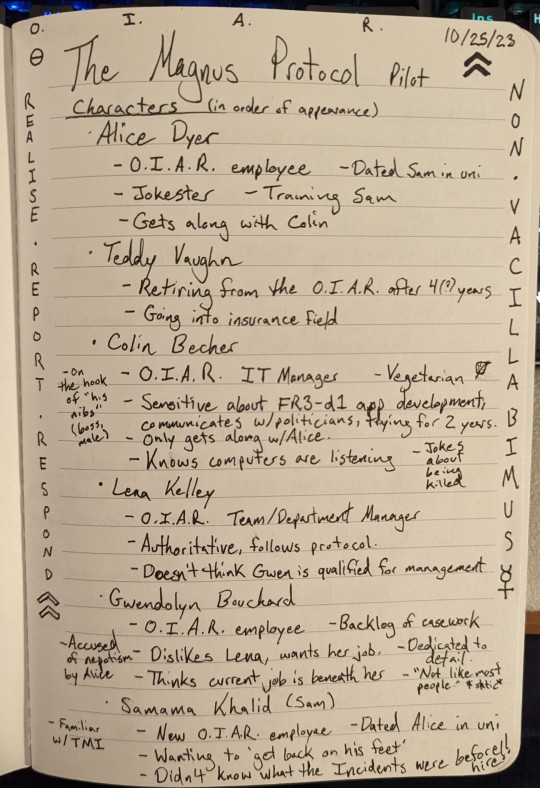 O. I. A. R.
10/25/23
The Magnus Protocol Pilot
Characters (in order of appearance)
· Alice Dyer
- O.I.A.R. employee - Dated Sam in uni
- Jokester - Training Sam
- Gets along with Colin
· Teddy Vaughn
- Retiring from the O.I.A.R. after 4(?) years
- Going into insurance field
· Colin Becher
- O.I.A.R. IT Manager - Vegetarian
- On the hook of "his nibs" (boss, male)
- Sensitive about FR3-d1 app development,
communicates w/politicians, trying for 2 years.
- Only gets along w/Alice.
- Knows computers are listening
- Jokes about being killed
· Lena Kelley
- O.I.A.R. Team/Department Manager
- Authoritative, follows protocol.
- Doesn't think Gwen is qualified for management
· Gwendolyn Bouchard
- O.I.A.R. employee - Backlog of casework
- Accused of nepotism by Alice
- Dislikes Lena, wants her job. - Dedicated to detail.
- Thinks current job is beneath her - "Not like most people" *static*
· Samama Khalid (Sam)
- Familiar w/TMI
- New O.I.A.R. employee - Dated Alice in uni
- Wanting to 'get back on his feet'
- Didn't know what the Incidents were before hire!!
REALISE · REPORT · RESPOND
NON · VACILLABIMUS
Ins